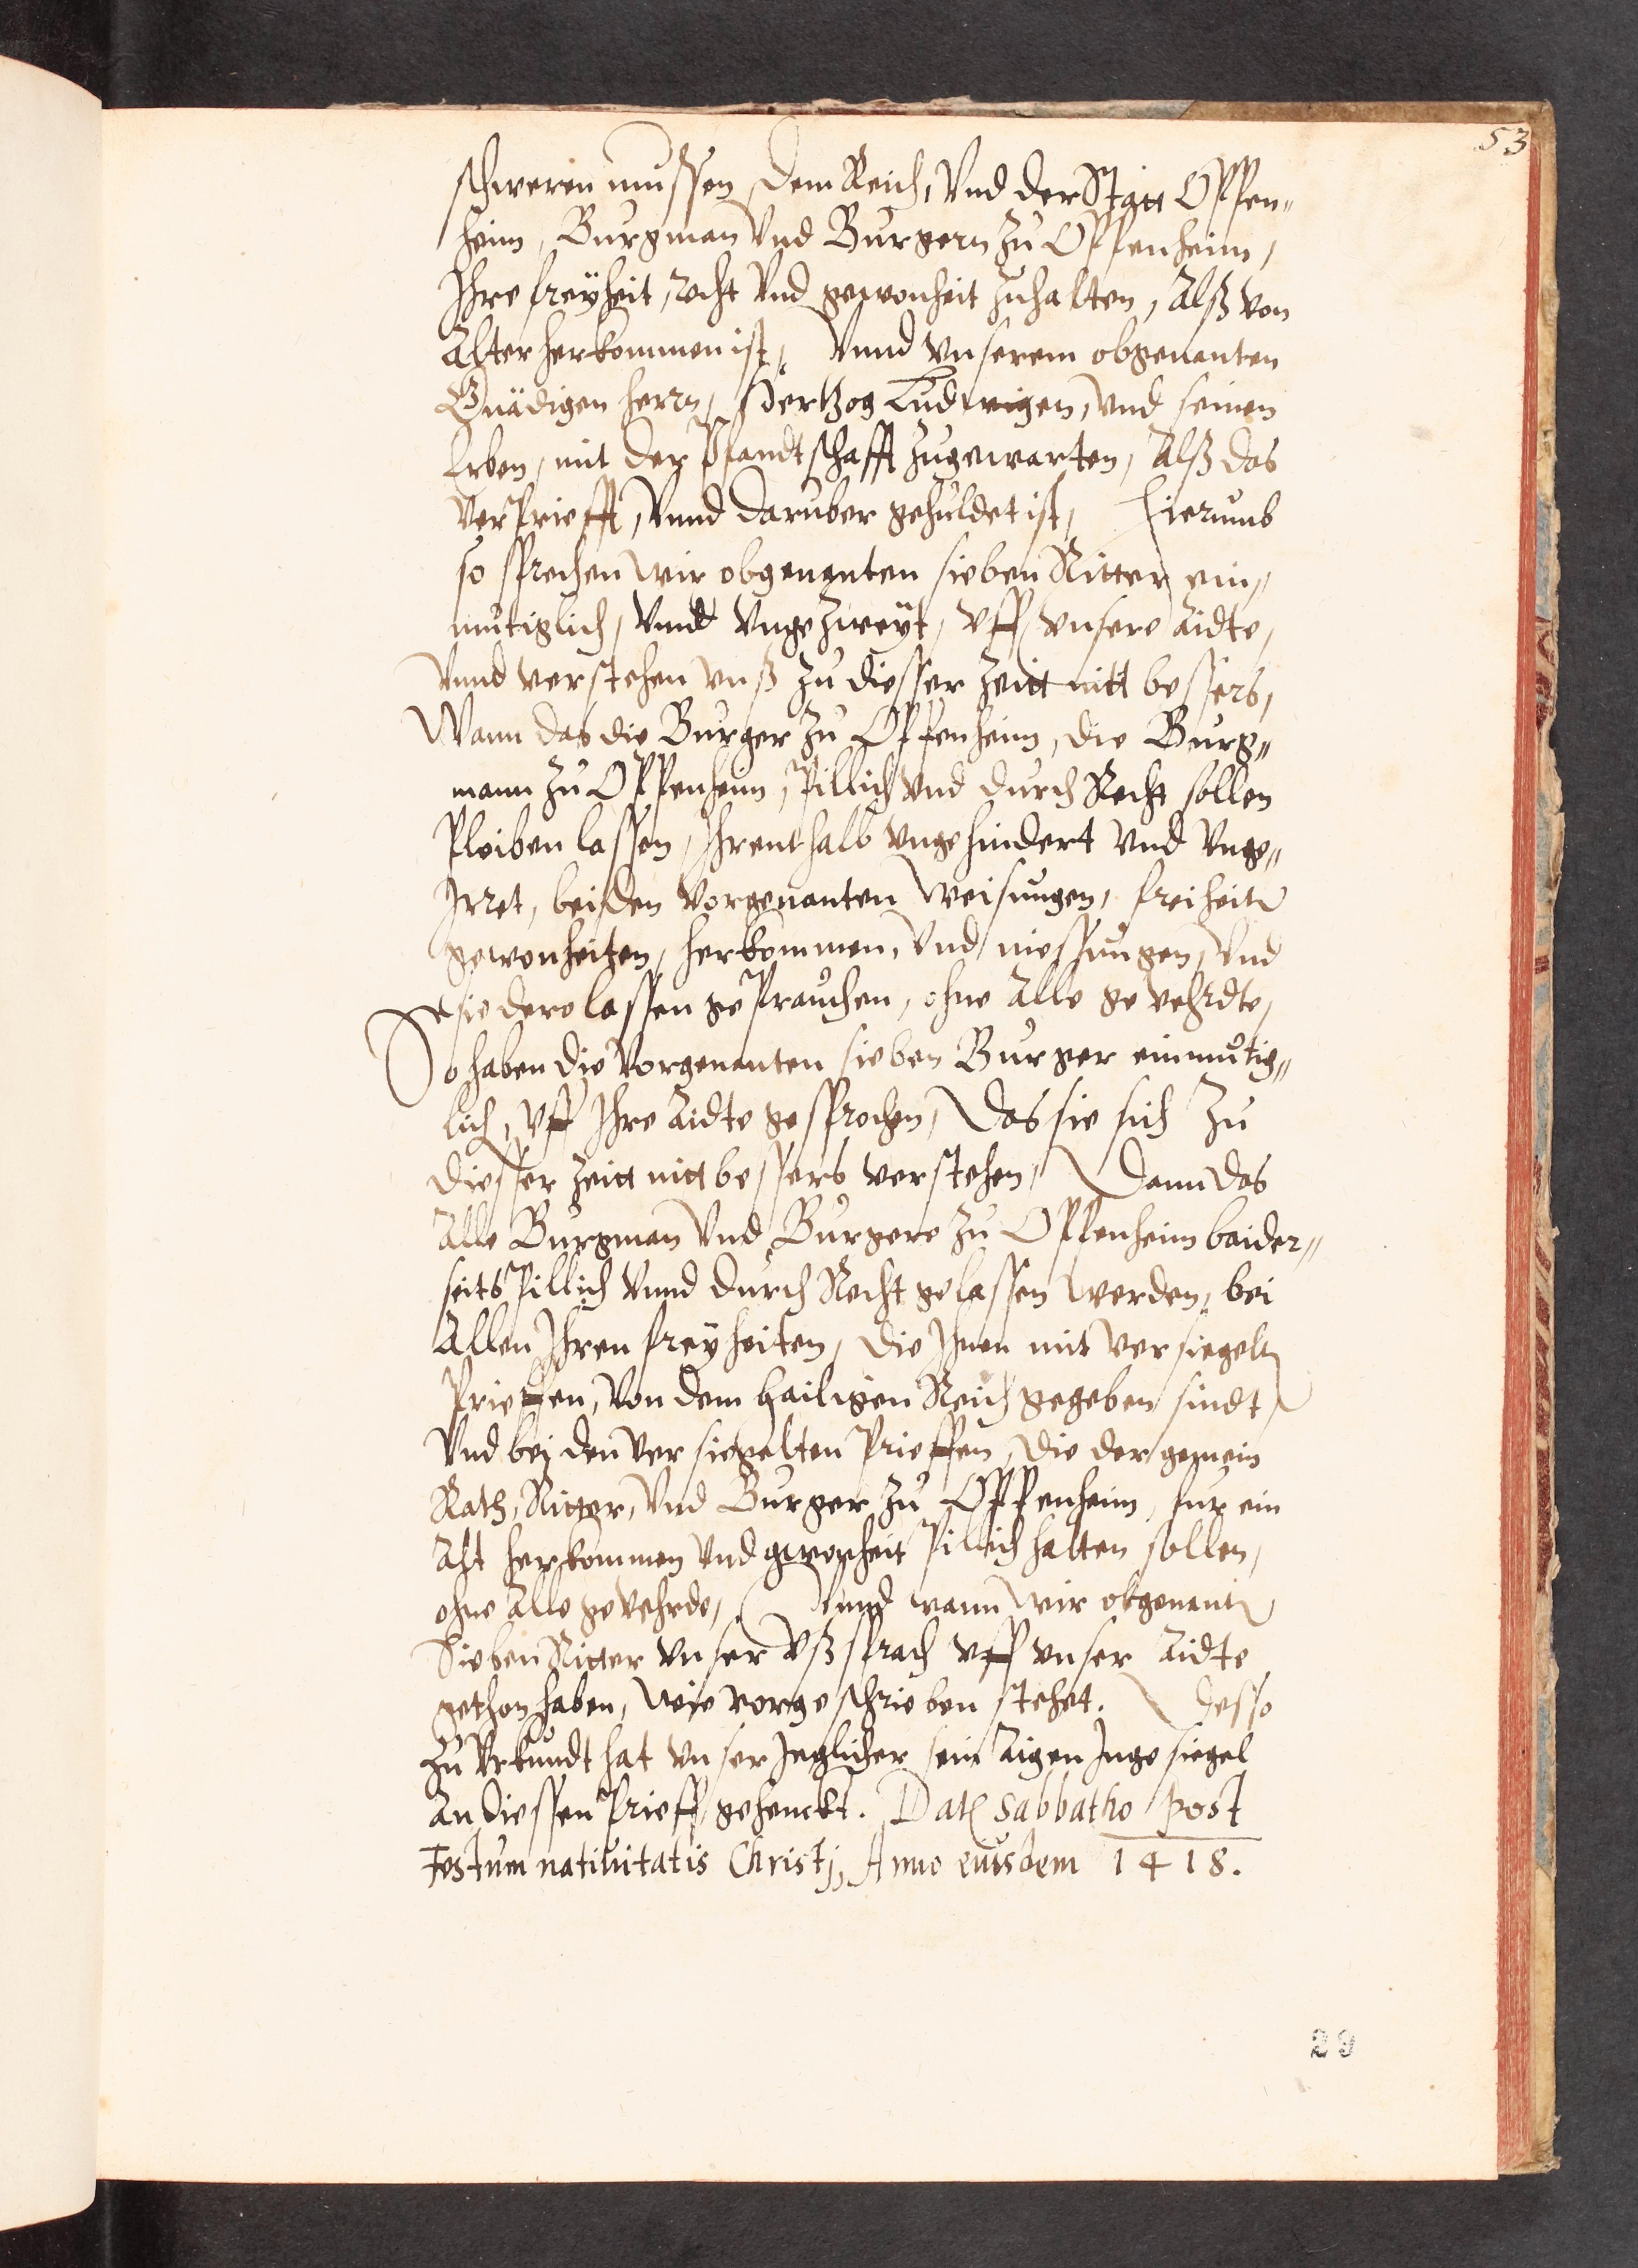 53
schweren mussen, dem Reich, Vnd der Statt Oppen„
heim, Burgman Vnd Burgern zu Oppenheim,
Ihre freyheit, recht Vnd gewonheit zuhalten, Alß von
Alter herkommen ist, Vnnd Vnserem obgenanten
Gnädigen herrn, Hertzog Ludwigen, Vnd seinen
Erben, mit der Pfandtschafft zugewarten, Alß das
Verpriefft, Vnnd daruber gehuldet ist, Hierumb
so sprechen wir obgenanten sieben Ritter ein„
mutiglich, Vnnd Vngezweyt, Vff Vnsere Aidte,
Vnnd verstehen vnß zu diesser zeitt nitt bessers,
Wann das die Burger zu Oppenheim, die Burg„
mann zu Oppenheim, Pillich Vnd durch Recht sollen
Pleiben lassen, Ihrenthalb Vngehindert Vnd Vnge„
Irret, bei den Vorgenanten Weisungen, freiheite
gewonheiten, herkommen, Vnd niessungen, Vnd
sie dere lassen geprauchen, ohne Alle gevehrdte,
So haben die Vorgenanten sieben Burger einmutig„
lich, Vff Ihre Aidte gesprochen, Das sie sich zu
diesser zeitt nitt bessers verstehen, Dann das
Alle Burgman Vnd Burgere zu Oppenheim baider„
seits Pillich Vnnd durch Recht gelassen werden, bei
Allen Ihren freyheiten, die Ihnen mit Versiegelten
Prieffen, Von dem hailigen Reich gegeben sindt,
Vnd bej den Versiegelten Prieffen, die der gemein
Rath, Ritter, Vnd Burger zu Oppenheim, fur ein
Alt herkommen Vnd gewonheit Pillich halten sollen,
ohne Alle gevehrde, Vnnd wann wir obgenante
Sieben Ritter Vnser Vßsprach Vff Vnser Aidte
gethon haben, wie vorgeschrieben stehet. Desse
zu Vrkundt hat Vnser Jeglicher sein Aigen Inge siegel
An diessen Prieff gehenckt. Dat. Sabbatho post
Festum natiuitatis Christj, Anno eiusdem 1418.
29